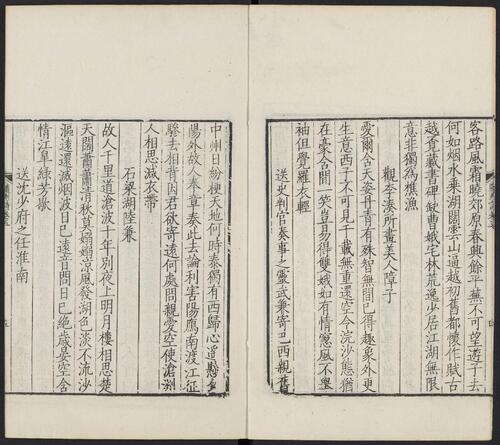 客路風霜曉郊原春興餘平蕪不可望遊子去
何如烟水乘湖闊雲山適越初舊都懷作賦古
越看藏書碑缺曹娥宅林荒逸少居江湖無限
意非獨為樵漁
觀李湊所畫美人障子
愛爾含天姿丹青有殊智無間已得趣象外更
生意西子不可見千載無重還空令浣沙態猶
在豪含間一笑豈易得雙娥如有情窓風不舉
袖但覺羅衣輕
送史判官奏事之靈武兼寄巴西親舊
中州日紛梗天地何時泰獨有西歸心遥懸夕
陽外故人奉章奏此去論利害陽鴈南渡江征
驂去相背因君欲寄遠何處問親愛空使滄洲
人相思減衣帶
石梁湖陸兼
故人千里道滄波十年別夜上明月樓相思楚
天闊蕭蕭清秋莫嫋嫋涼風發湖色淡不流沙
漚遠還滅烟波日已遠音問日已絶歲晏空含
情江皐綠芳歇
送沈少府之任淮南